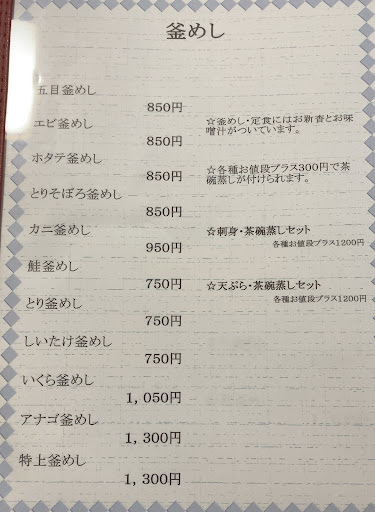 釜めし
五目釜めし
850円
エビ釜めし
850円
ホタテ釜めし
850円
とりそぼろ釜めし
850円
カニ釜めし
950円
鮭釜めし
750円
とり釜めし
750円
しいたけ釜めし
750円
いくら釜めし
1,050円
アナゴ釜めし
1,300円
特上釜めし
1,300円
☆釜めし・定食にはお新香とお味
噌汁がついています。
☆各種お値段プラス300円で茶
碗蒸しが付けられます。
☆刺身・茶碗蒸しセット
各種お値段プラス1200円
☆天ぷら・茶碗蒸しセット
各種お値段プラス1200円